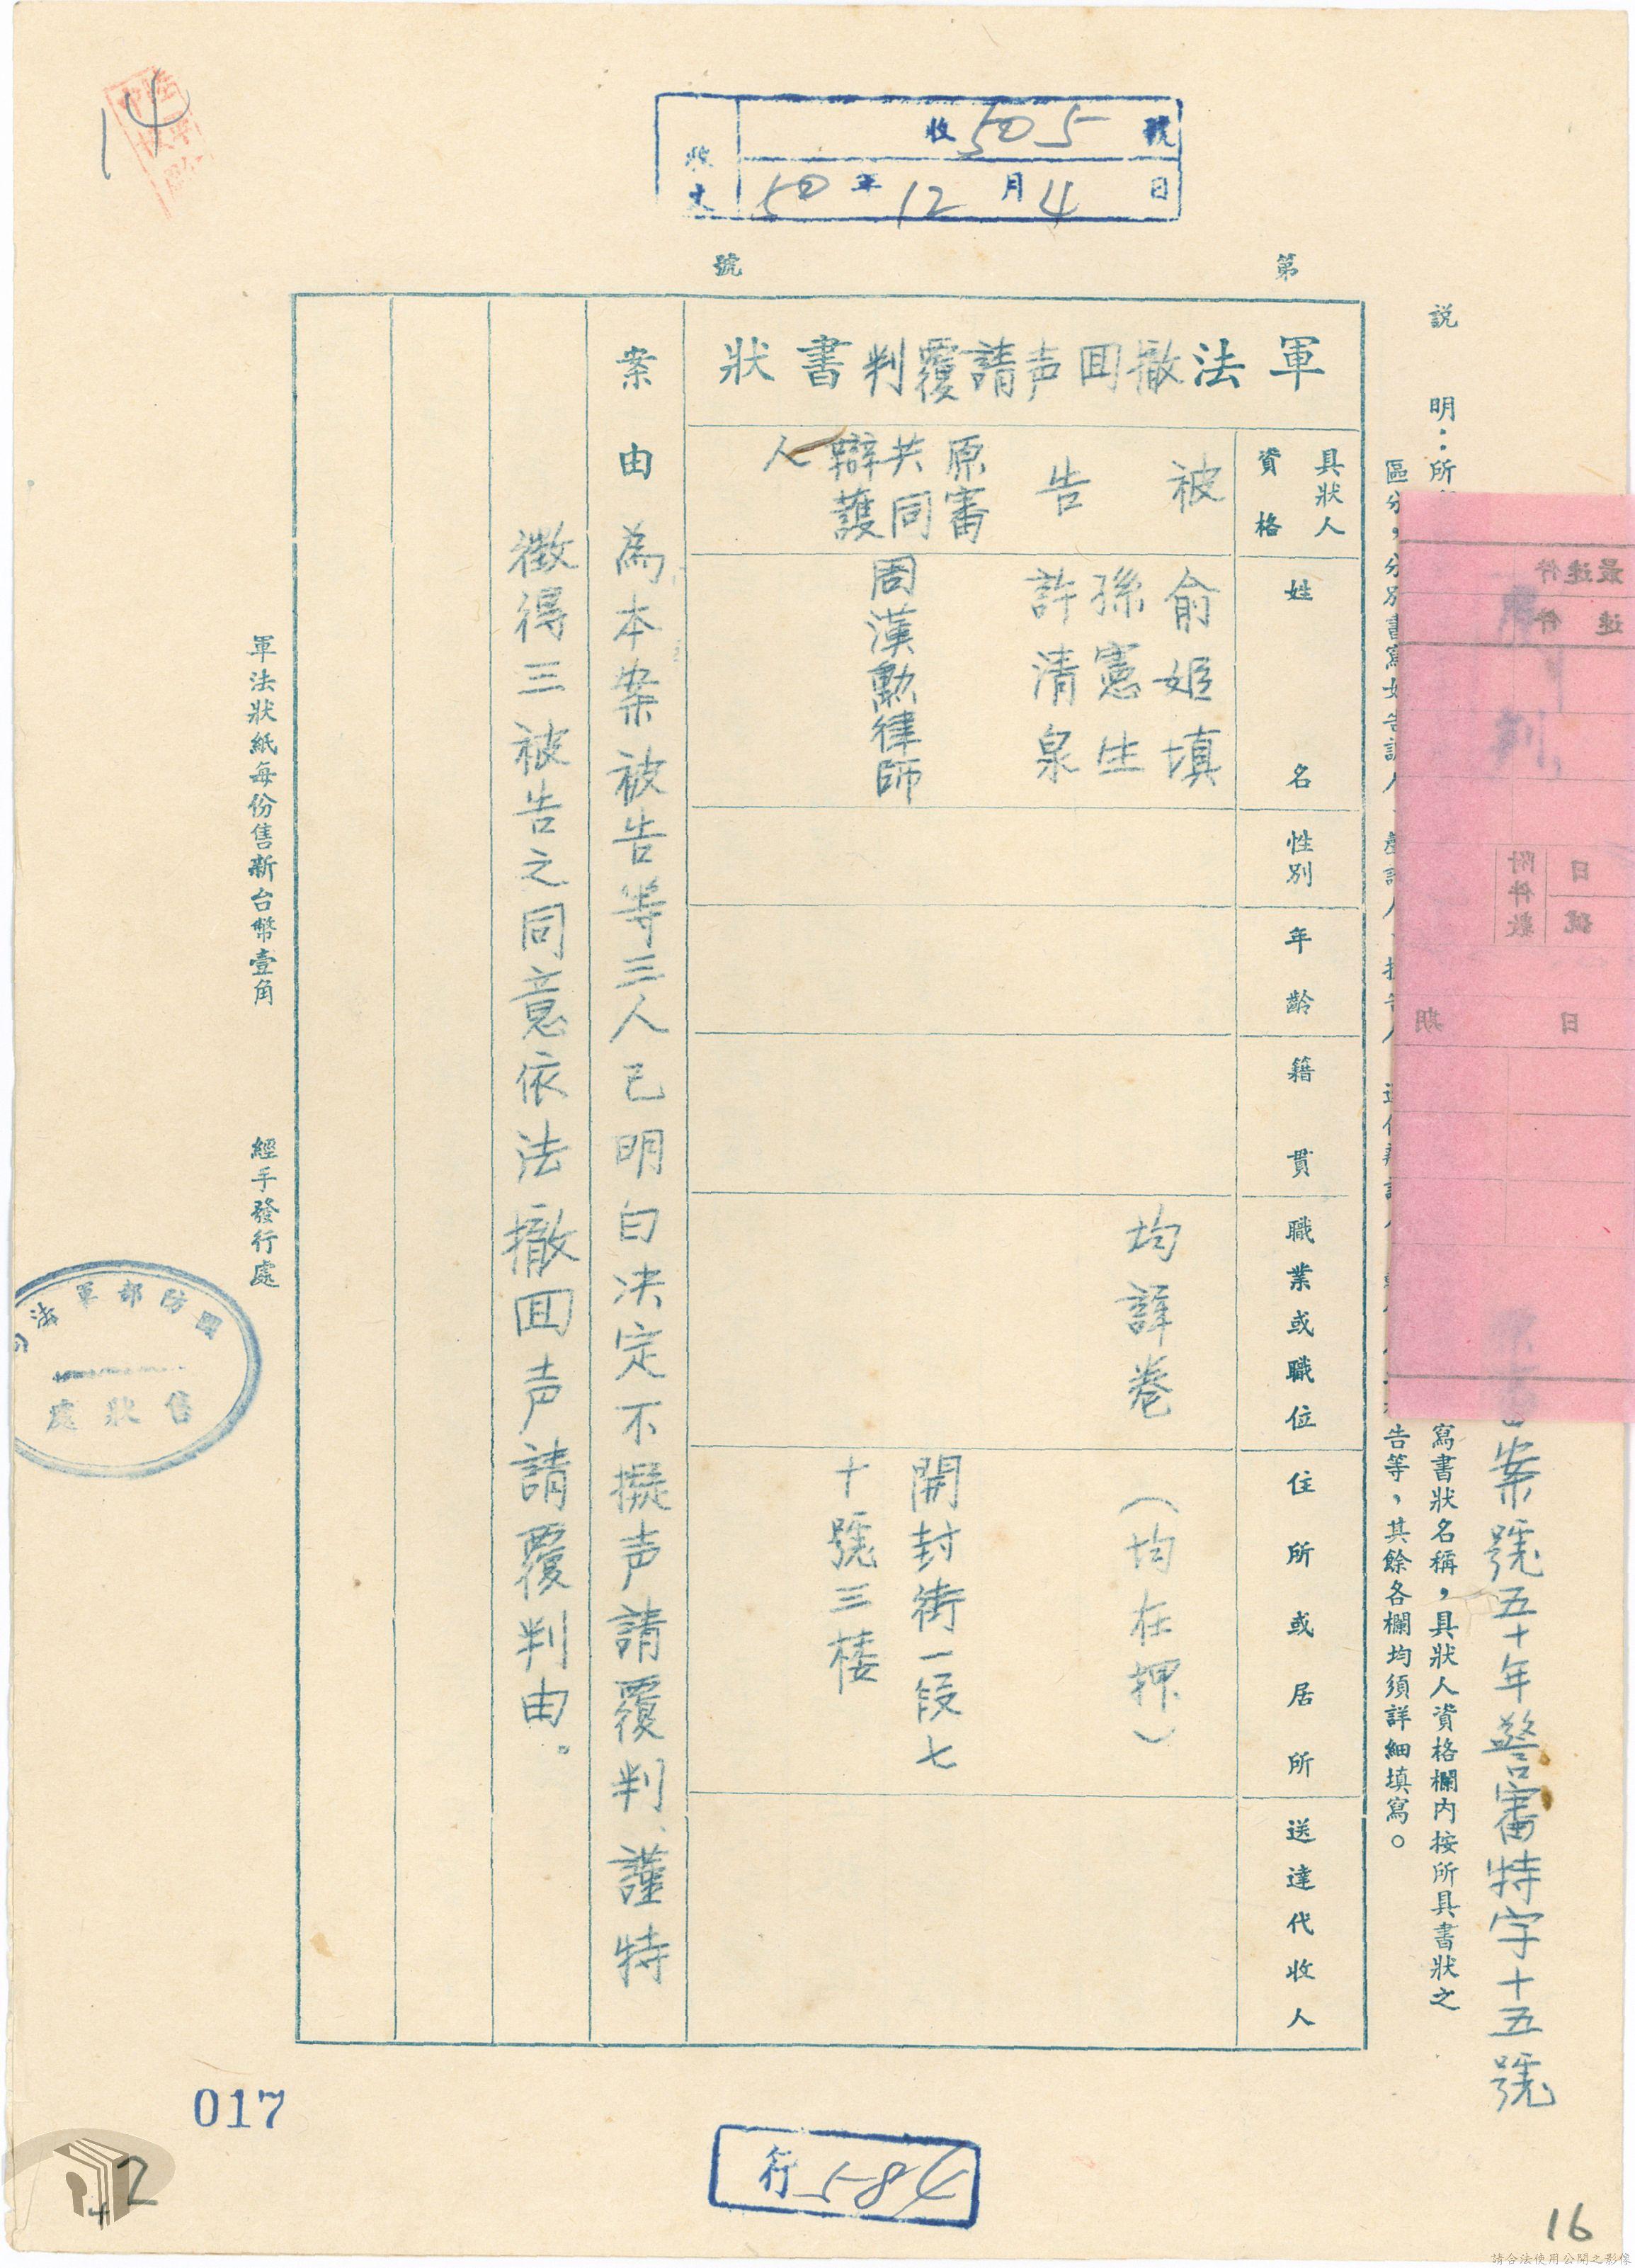 14
收文
收 505 號
50 年 12 月 4 日
第 號
案號五十年警審特字十五號
說 明：所
寫書狀名稱，具狀人資格欄內按所具書狀之
區分，分別書寫如告訴人、
告等，其餘各欄均須詳細填寫。
最速件
速件
附件數
日
號
日期
軍法撤回声請覆判書狀
具狀人資格
姓名
性別
年齡
籍貫
職業或職位
住所或居所
送達代收人
被告
俞姬填
孫憲生
許清泉
均詳卷
（均在押）
原審共同辯護人
周漢勳律師
開封街一段七十號三楼
案由
為本案被告等三人已明白決定不擬声請覆判、謹特
徵得三被告之同意依法撤回声請覆判由。
軍法狀紙每份售新台幣壹角
經手發行處
國防部軍法
售狀處
017
行 584
2
16
請合法使用公開之影像